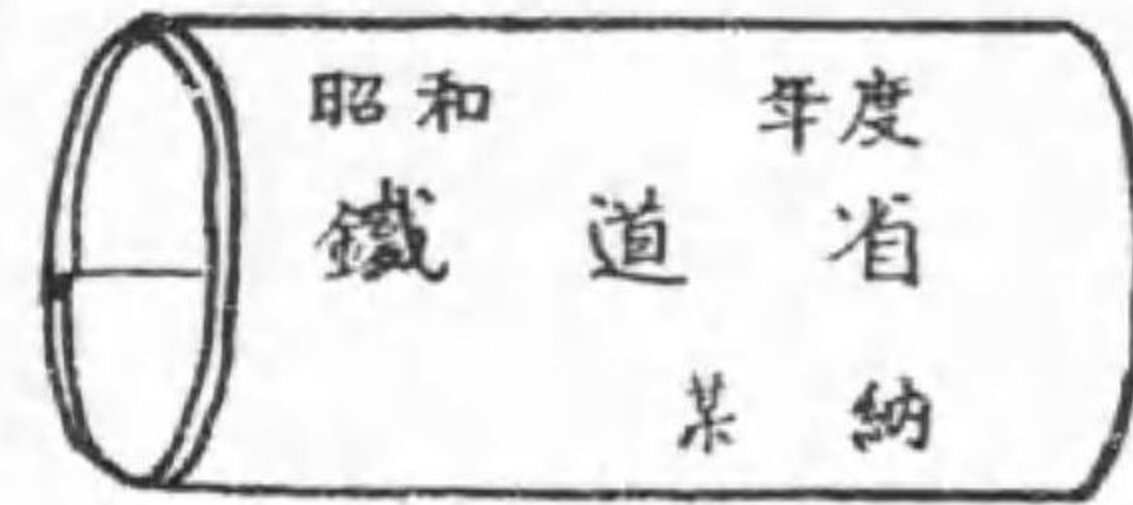 昭和　　年度
鐵道省
某納